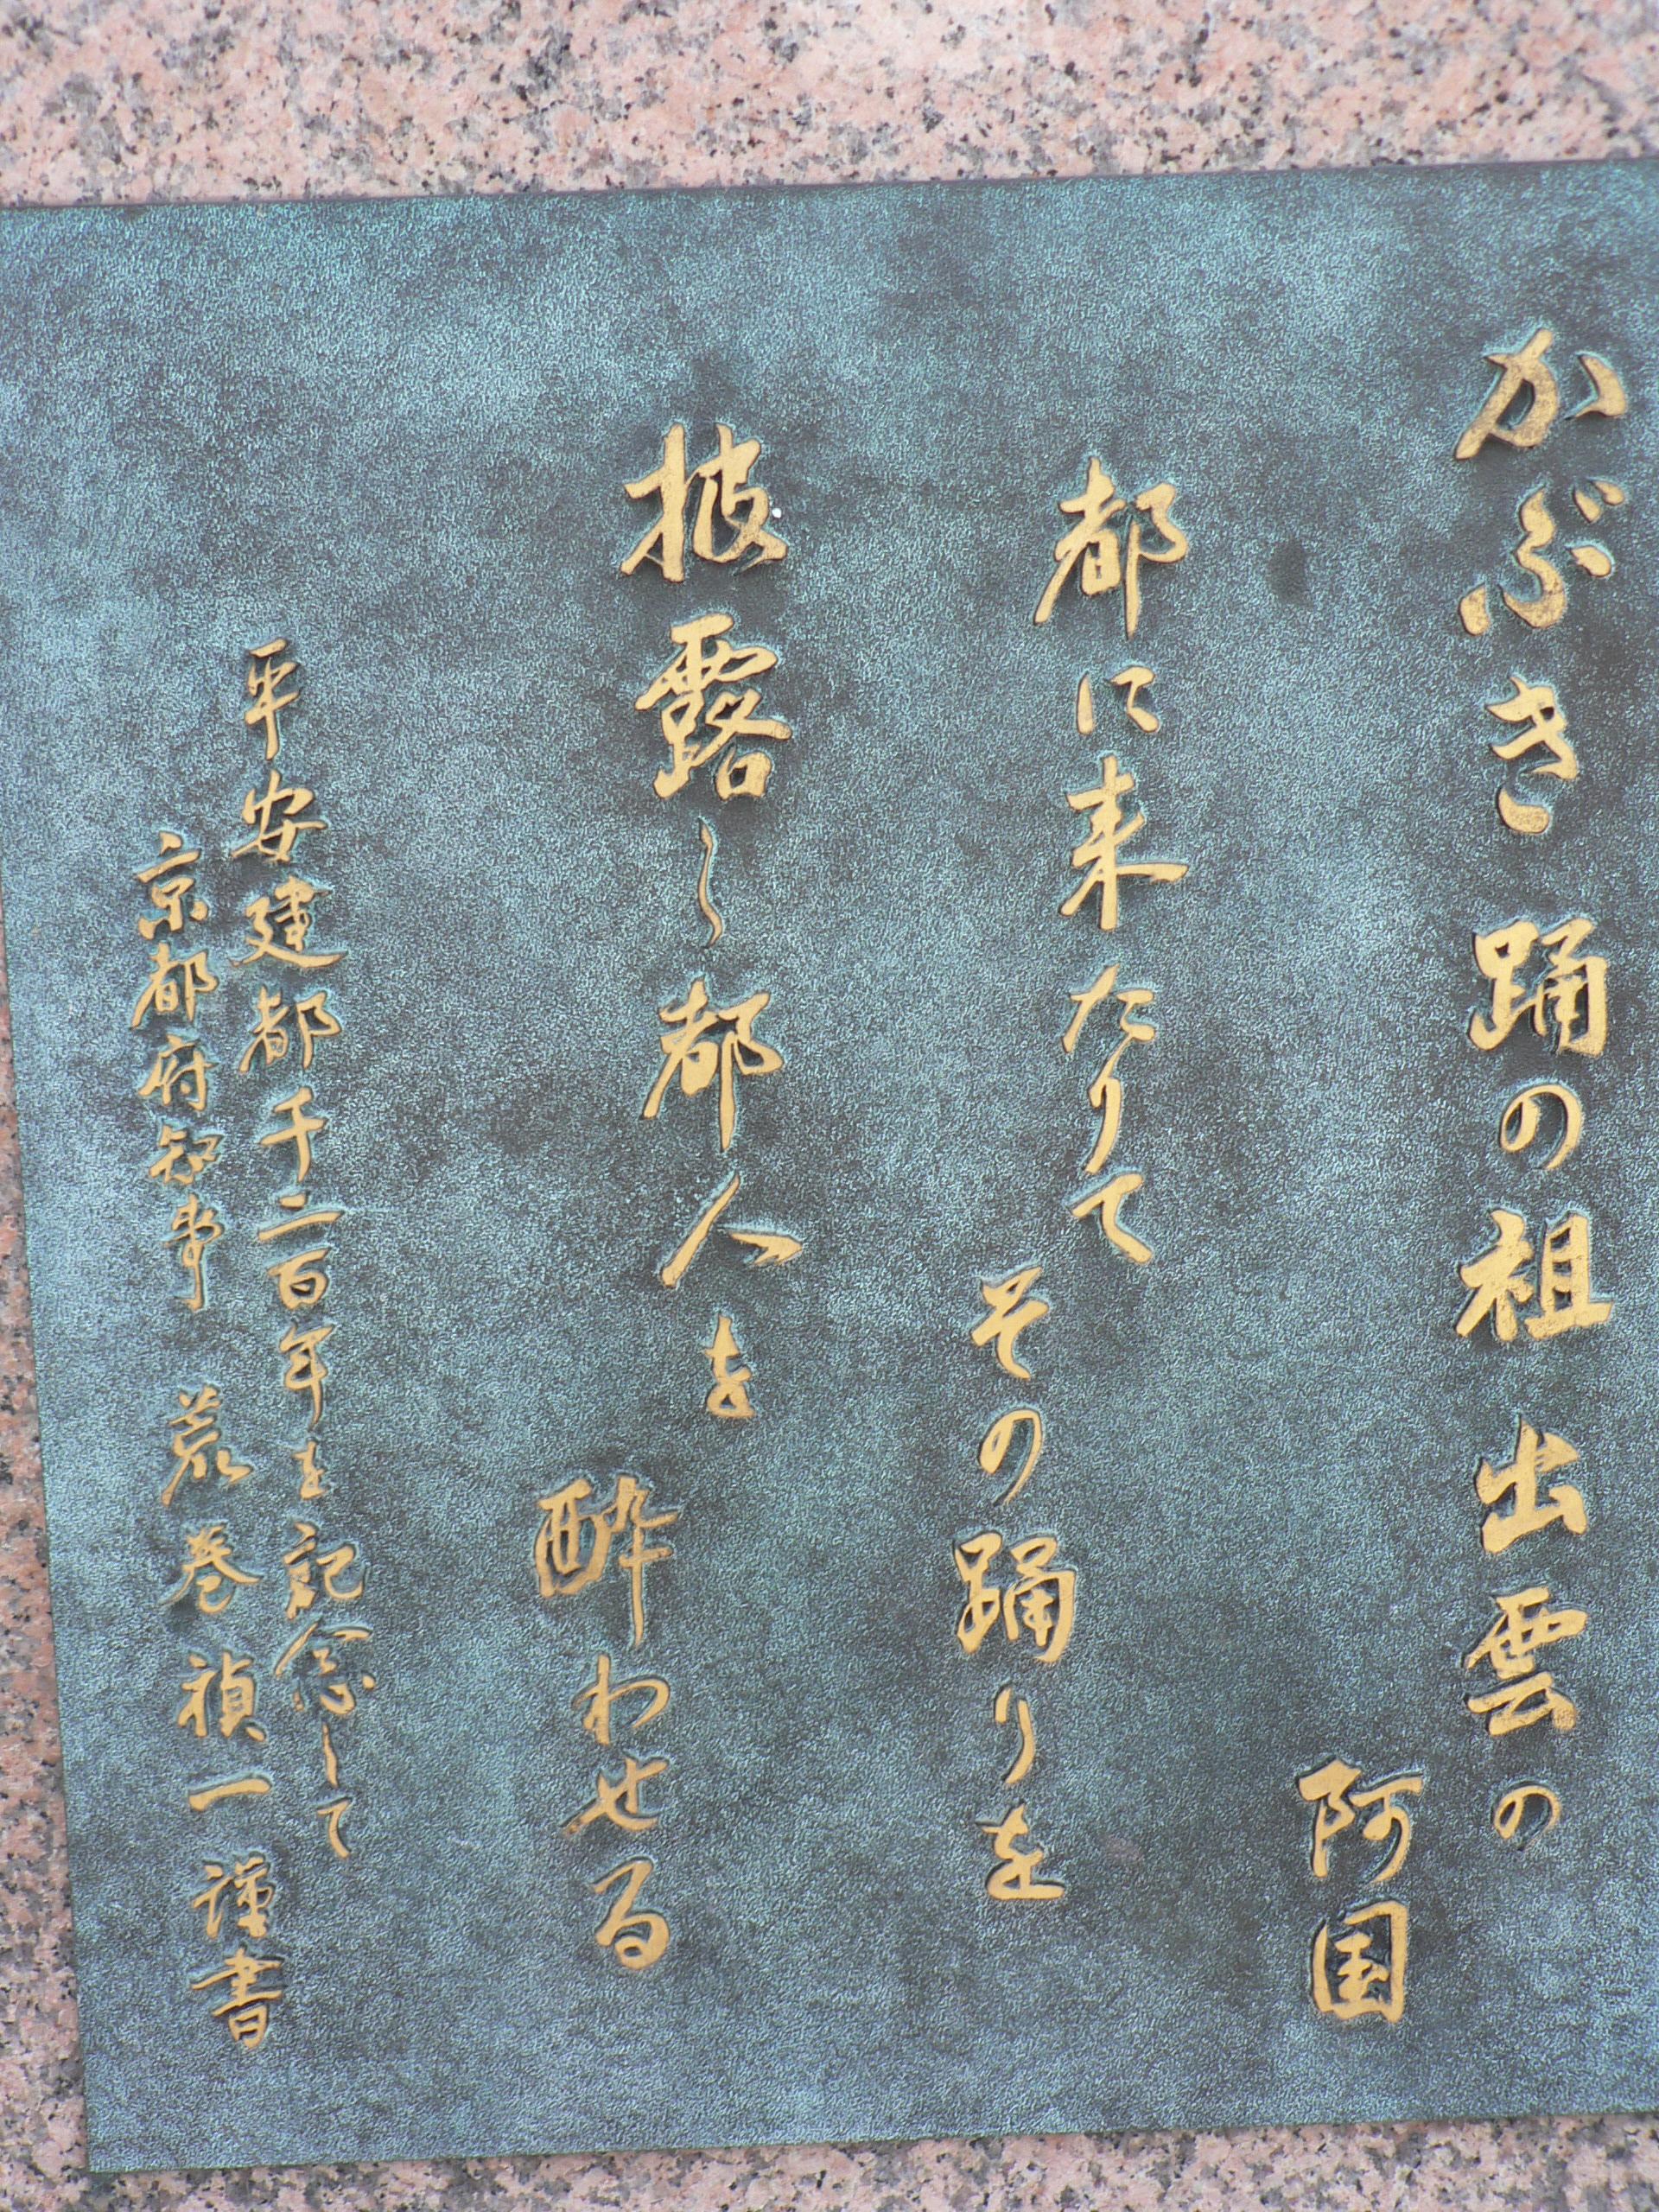 かぶき踊の祖出雲の
阿国
都に来たりて
その踊りを
披露し都人を
酔わせる
平安建都千二百年を記念して
京都府知事 荒巻禎一 謹書